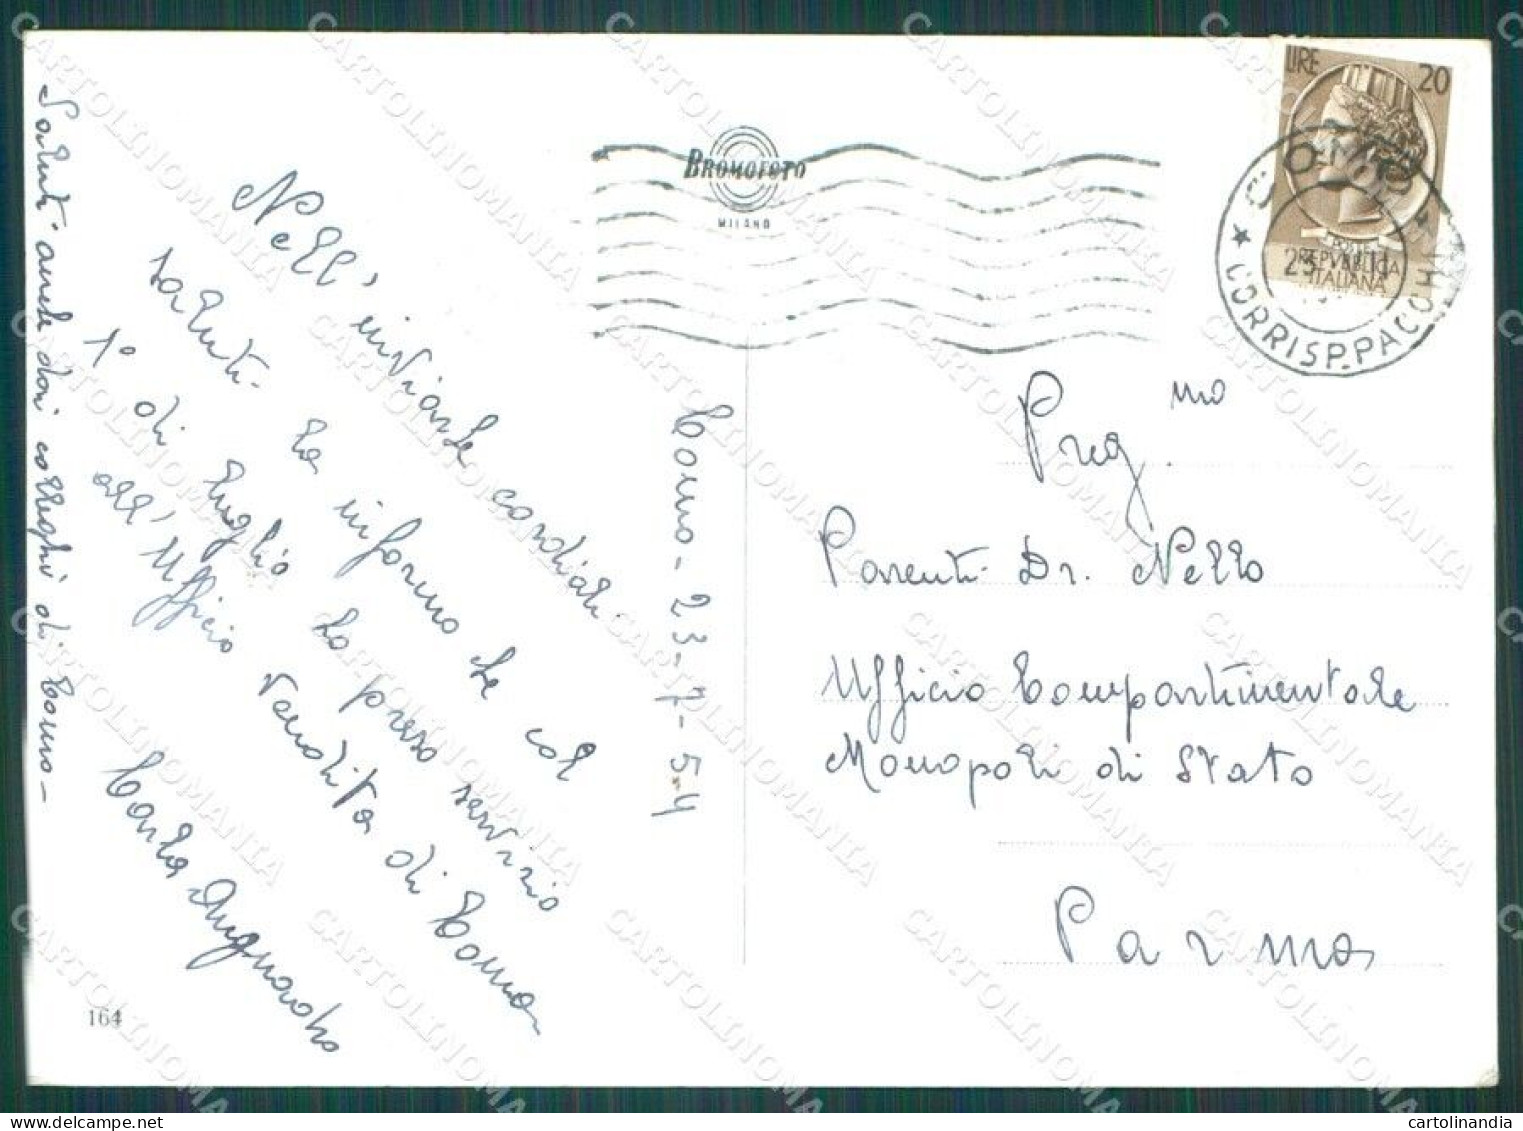 Nell' inviarle cordiali
saluti. La informo che col
1° di luglio ho preso servizio
all' Ufficio Vendita di Como
Carlo
Saluti anche dai colleghi di Como-
Como-23-7-54
BROMOFOTO
MILANO
LIRE 20
REPVBBLICA
ITALIANA
COMO
CORRISP. PACCHI
Preg.mo
Parenti Dr. Nello
Ufficio Compartimentale
Monopoli di Stato
Parma
164
CARTOLINOMANIA
cartolinandia